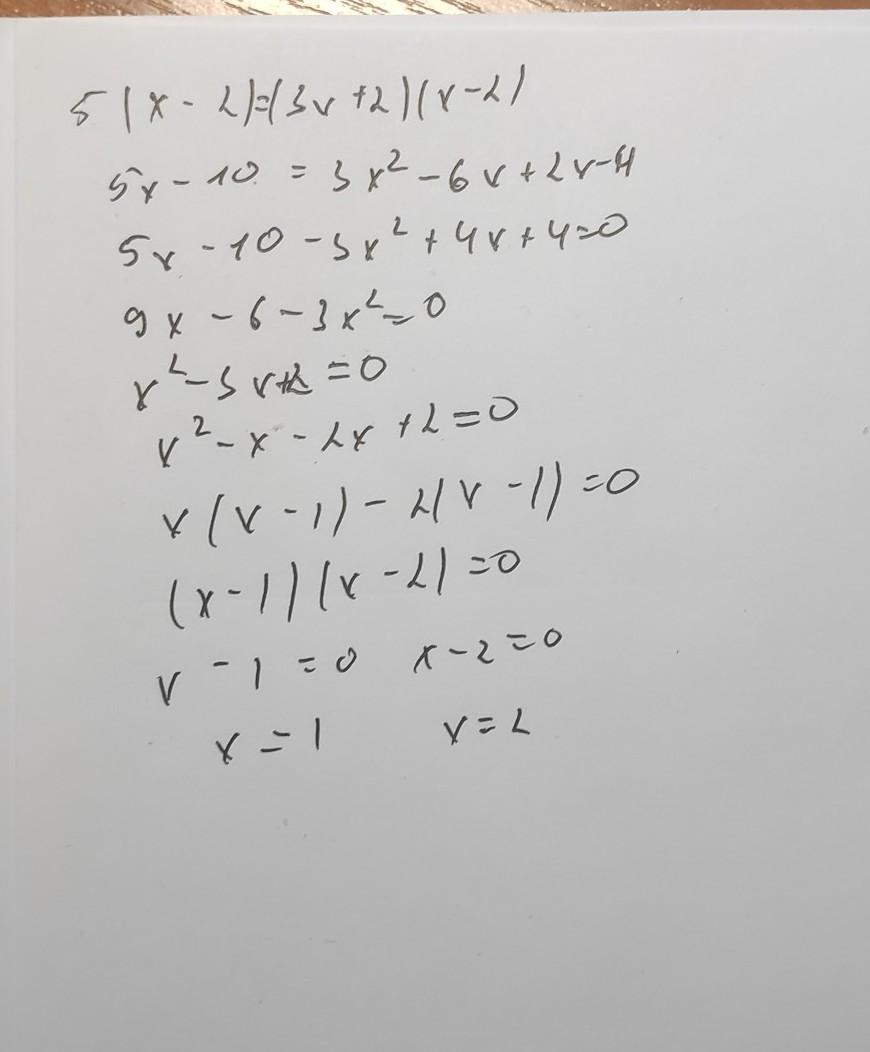 5(x-2)=(3x+2)(x-2)
5x-10=3x²-6x+2x-4
5x-10-3x²+4x+4=0
9x-6-3x²=0
x²-3x+2=0
x²-x-2x+2=0
x(x-1)-2(x-1)=0
(x-1)(x-2)=0
x-1=0 x-2=0
x=1 x=2